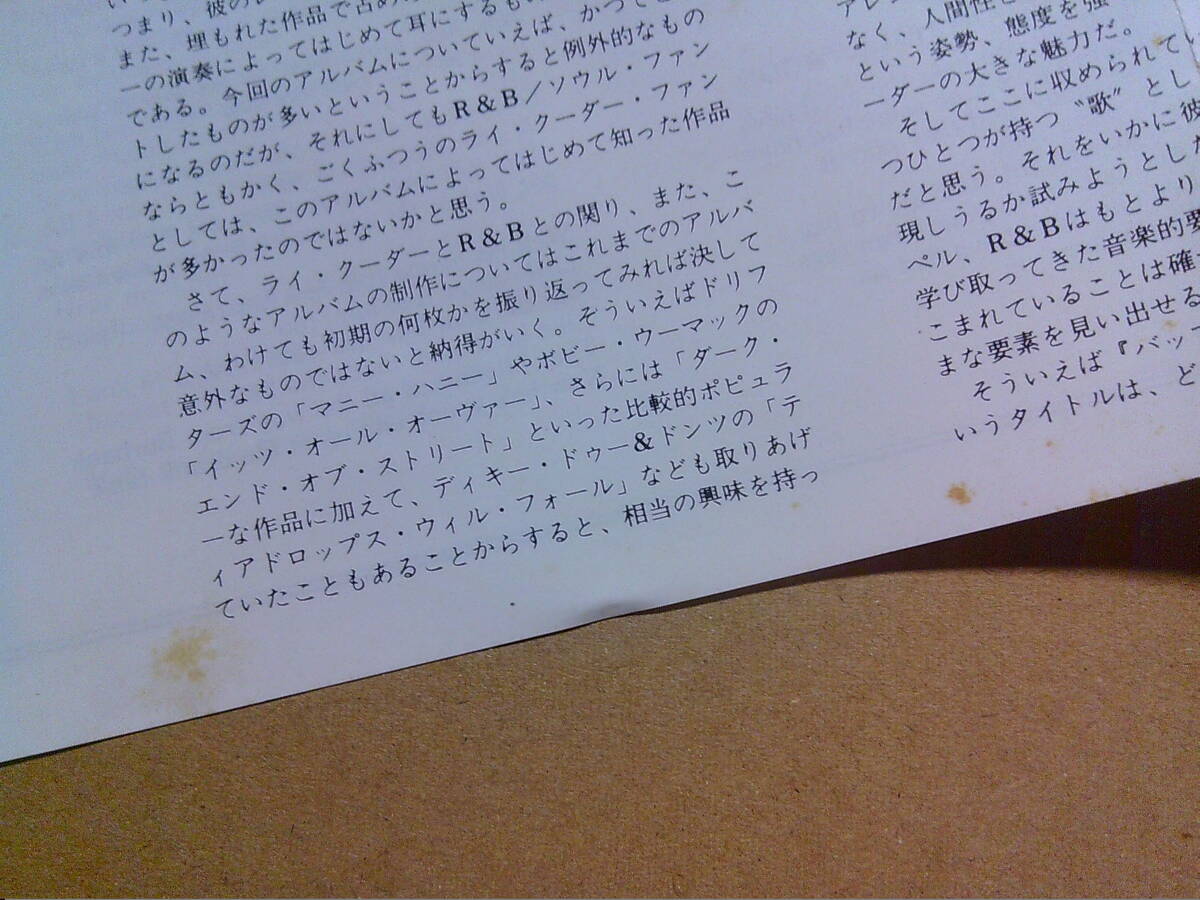 つまり、彼の
また、埋もれた作品で占め
ーの演奏によってはじめて耳にするも
である。今回のアルバムについていえば、かつて
トしたものが多いということからすると例外的なもの
になるのだが、それにしてもR&B/ソウル・ファン
ならともかく、ごくふつうのライ・クーダー・ファン
としては、このアルバムによってはじめて知った作品
が多かったのではないかと思う。
さて、ライ・クーダーとR&Bとの関り、また、こ
のようなアルバムの制作についてはこれまでのアルバ
ム、わけても初期の何枚かを振り返ってみれば決して
意外なものではないと納得がいく。そういえばドリフ
ターズの「マニー・ハニー」やボビー・ウーマックの
「イッツ・オール・オーヴァー」、さらには「ダーク・
エンド・オブ・ストリート」といった比較的ポピュラ
ーな作品に加えて、ディキー・ドゥー&ドンツの「テ
ィアドロップス・ウィル・フォール」なども取りあげ
ていたこともあることからすると、相当の興味を持っ
アレン
なく、人間性と
という姿勢、態度を強
ーダーの大きな魅力だ。
そしてここに収められてい
つひとつが持つ〝歌〟とし
だと思う。それをいかに彼
現しうるか試みようとした
ペル、R&Bはもとより
学び取ってきた音楽的要
こまれていることは確
まな要素を見い出せる
そういえば『バッ
いうタイトルは、ど